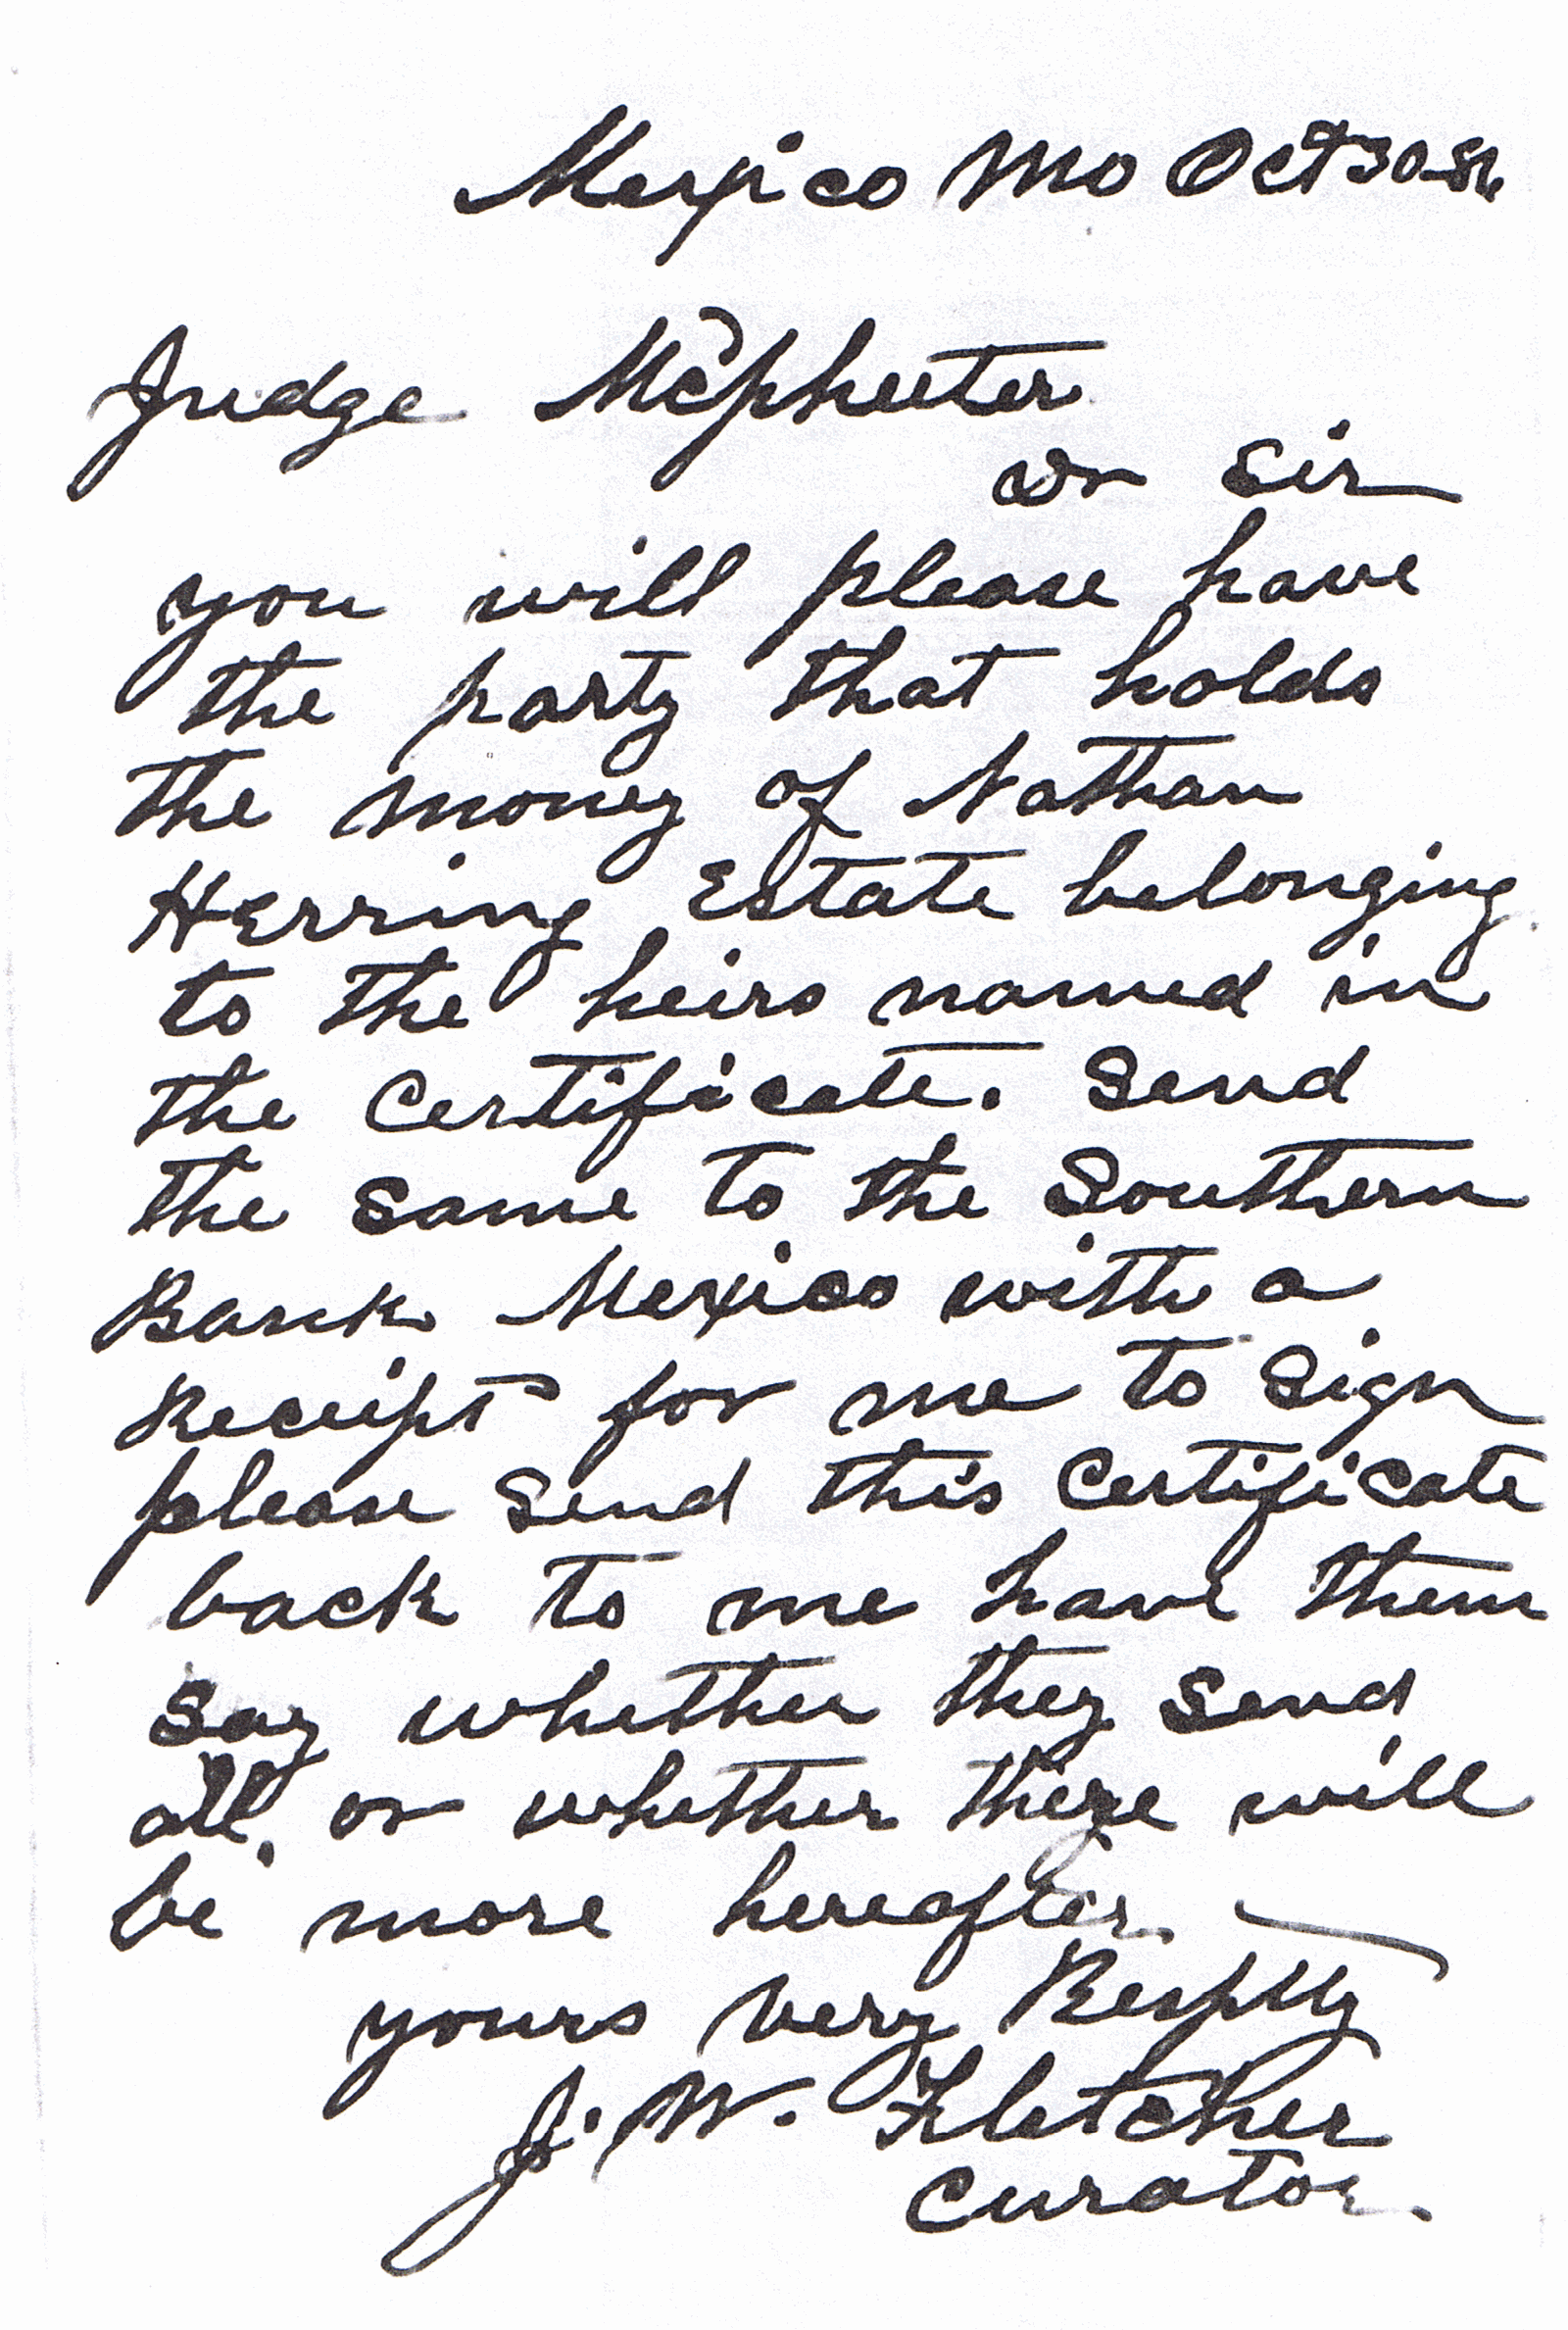 Mexico Mo Oct 30-86
Judge McPheeter
Dr Sir
you will please have
the party that holds
the money of Nathan
Herring Estate belonging
to the heirs named in
the Certificate. Send
the same to the Southern
Bank Mexico with a
Receipt for me to Sign
please Send this Certificate
back to me have them
Say whether they Send
all, or whether there will
be more hereafter
yours very Resptly
J. W. Fletcher
Curator.